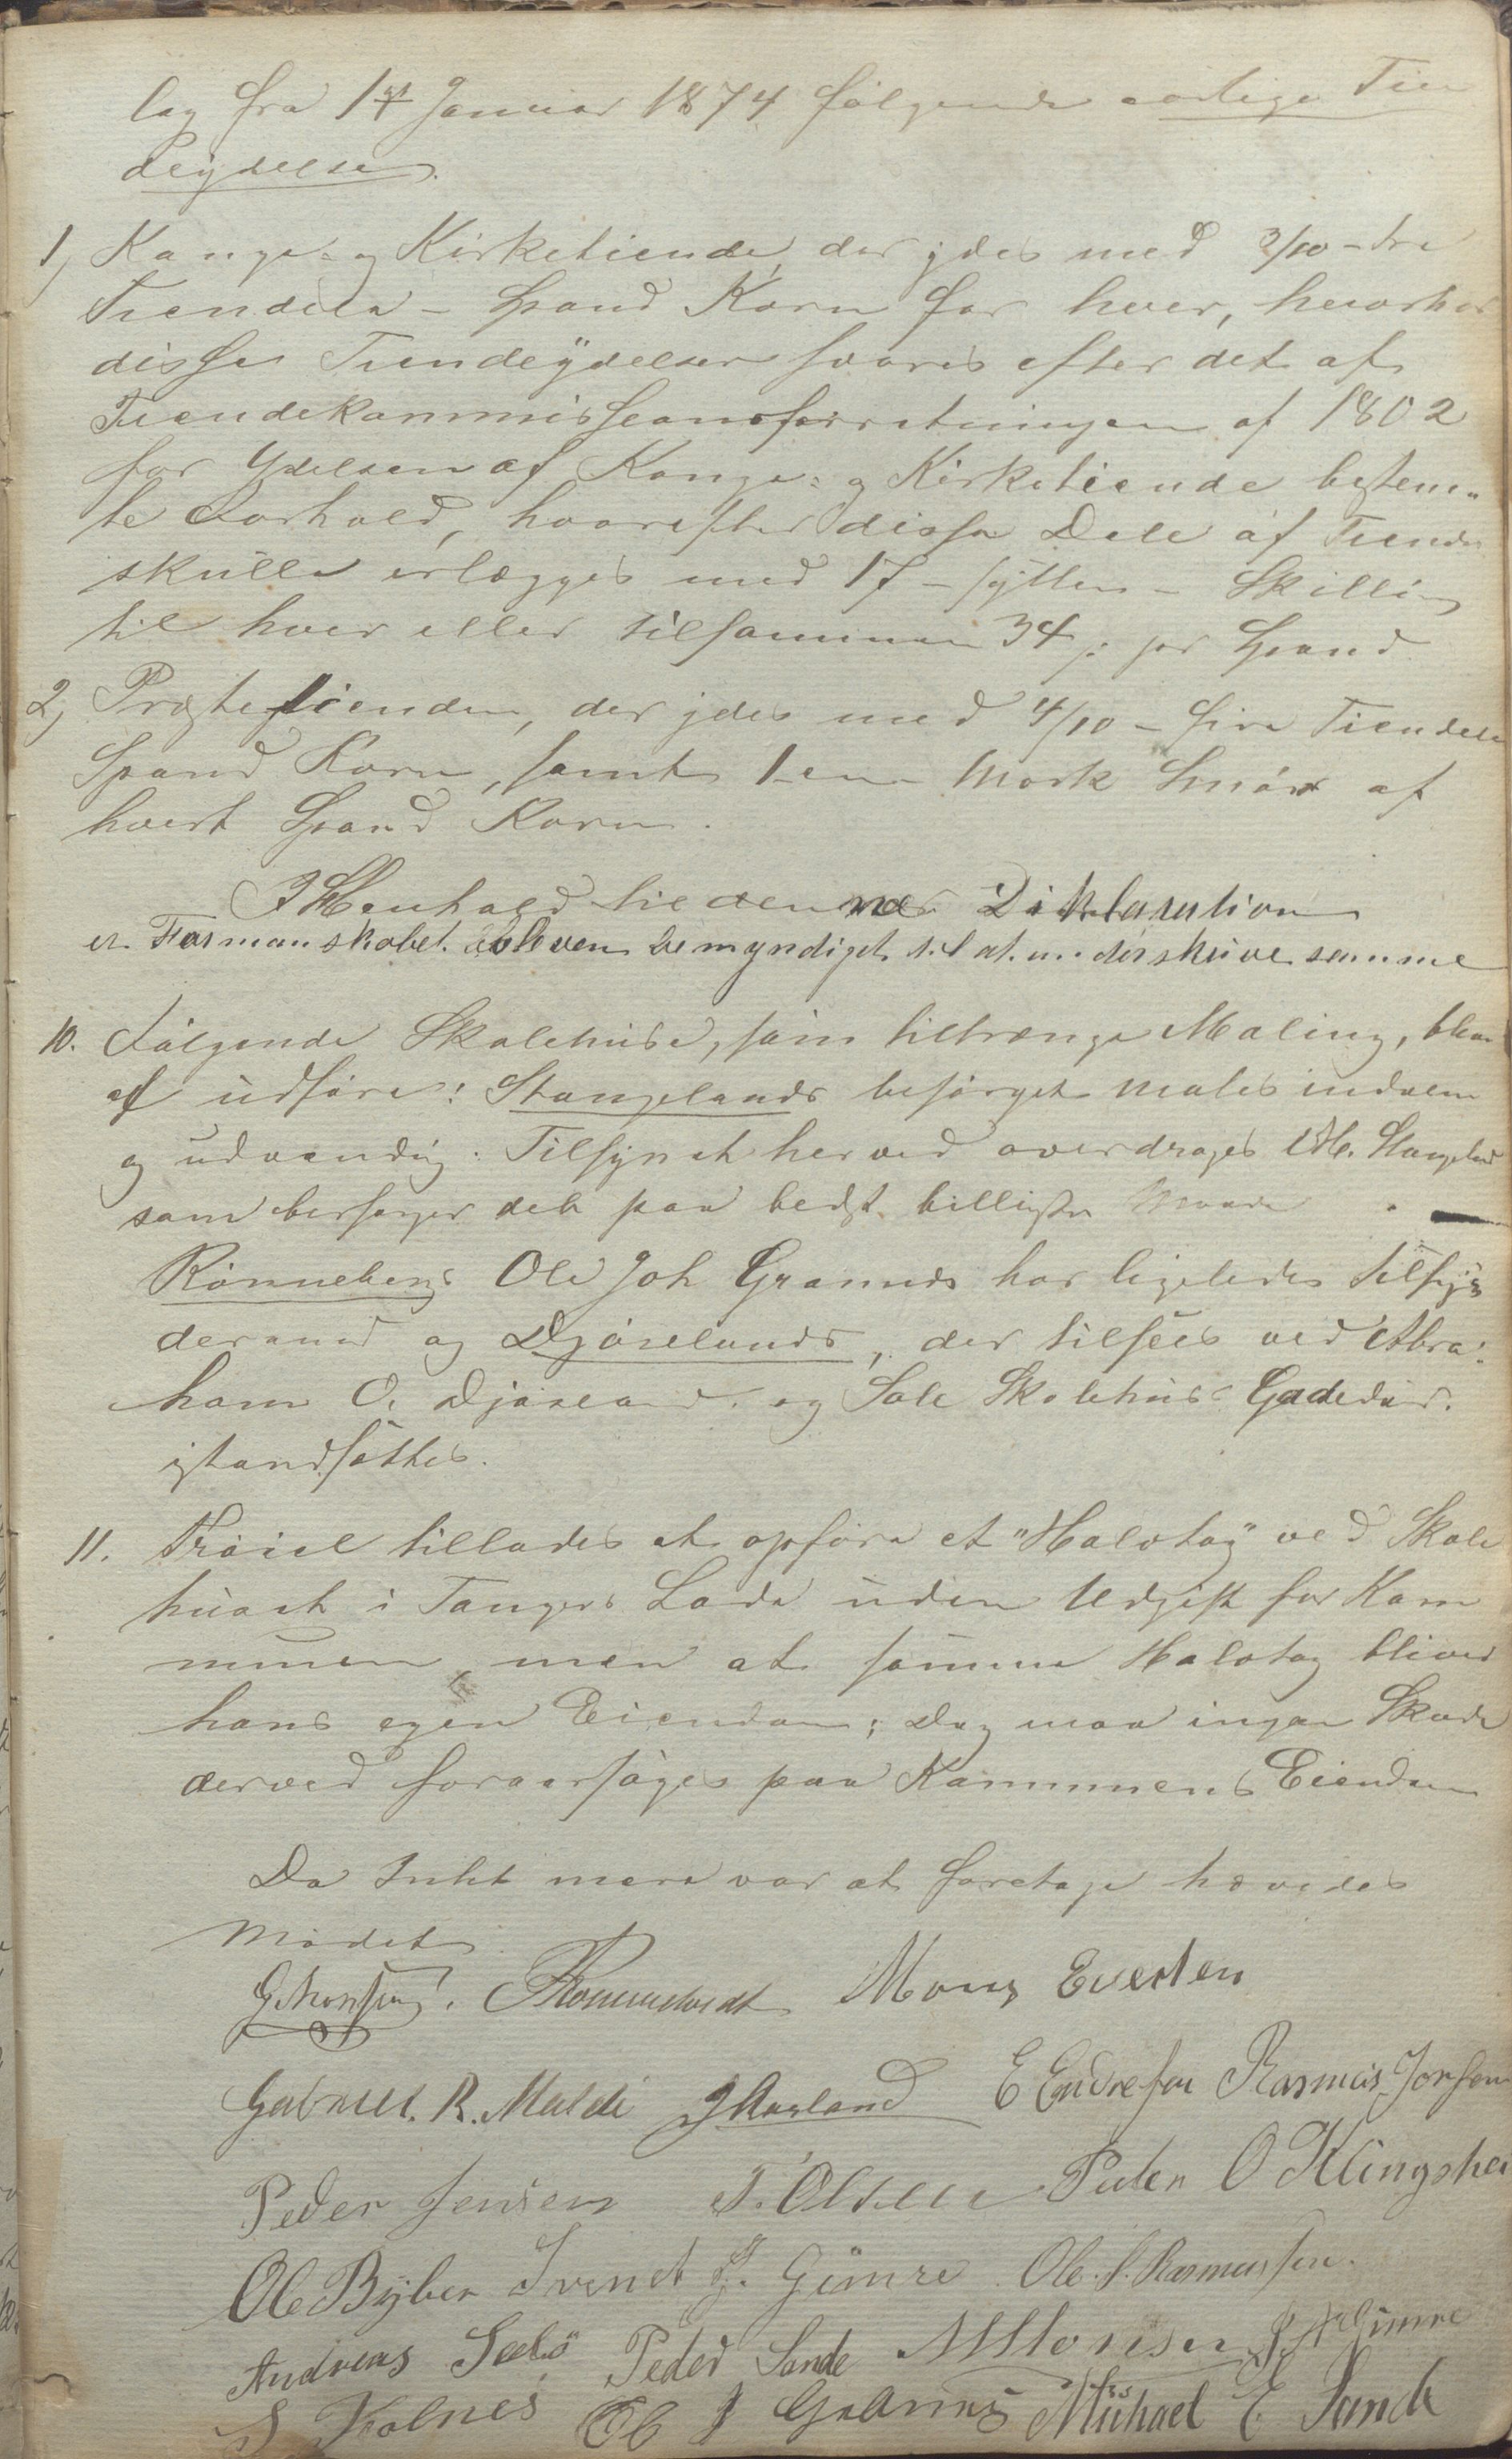 lag fra 1st Januar 1874 følgende aarlige Tien
deydelser.
1, Konge- og Kirketiende, der ydes med 3/10 - tre
Tiendels - Spand Korn for hver, hvorhos
disse Tiendeydelser svares efter det af
Tiendekommissionsforretningen af 1802
for Ydelsen af Konge- og Kirketiende bestem-
te Forhold, hvorefter disse Dele af Tiende
skulle erlægges med 17 - sytten - Skilling
til hver eller tilsammen 34 s: pr Spand
2, Prestetienden, der ydes med 4/10 - fire Tiendels
Spand Korn, samt 1 - en Mark Smør af
hvert Spand Korn.
I Henhold til denne Deklaration
er Formanskabet bleven bemyndiget til at underskrive samme
10. Følgende Skolehuse, som tiltrænge Maling, blev
at udføre: Stangelands besørget males indven
og udvendig. Tilsynet herved overdrages M. Stangeland
som besørger det paa bedst billigste Maade.
Rønnebergs Ole Joh Grannes har ligeledes Tilsyn
dermed og Djøselands, der tilsees ved Abra-
ham O. Djøseland og Sole Skolehus Gadedør
istandsættes.
11. Trøiel tillades at opføre et "Halvtag" ved Skole
huset i Tangers Lode uden Udgift for Kom
munen men at samme Halvtag bliver
hans egen Eiendom; Dog maa ingen Skade
derved foraarsages paa Kommunens Eiendom
Da Intet mere var at foretage hævedes
Mødet
G. Monsen. Rommetvedt Mons Evertsen
Gabriel. R. Malde Aarland E Endresen Rasmus Jonsen
Peder Jensen T. Olsen Peder O Klingshei
Ole Byber Svend J. Gimre Ole. S. Rasmussen.
Andreas Seebø Peder Sande M Monsen Gimre
S Kolnes Ole J Grannes Michael E Sande